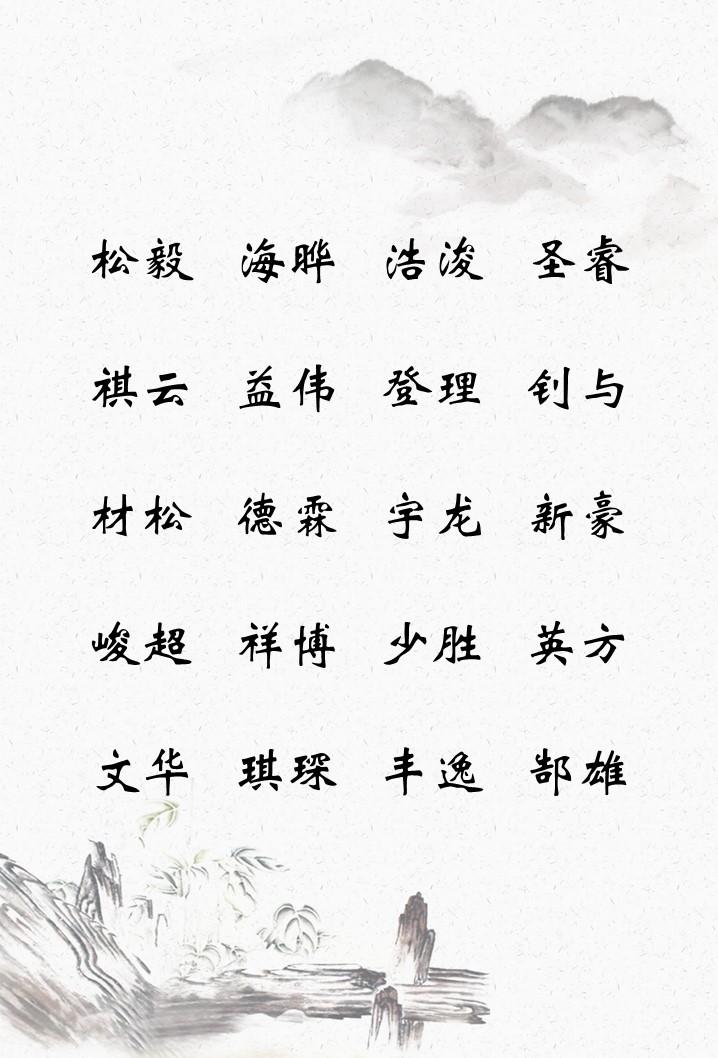 松毅 海晔 浩浚 圣睿
祺云 益伟 登理 钊与
材松 德霖 宇龙 新豪
峻超 祥博 少胜 英方
文华 琪琛 丰逸 郜雄